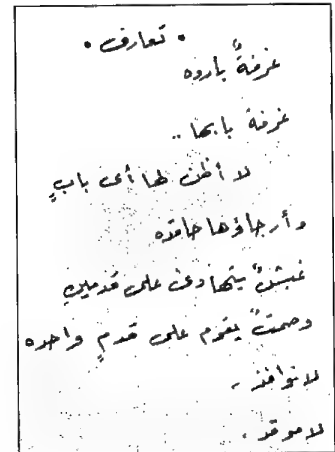 • تعارف •
غرفةٌ بارده
غرفة بابها ..
لا أظن لها أى بابٍ
وأرجاؤها حاقده
غبشٌ يتهادى على قدمين
وصمتٌ يقوم على قدمٍ واحده
لا نوافذ .
لا موقد .